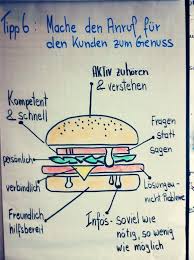 Tipp 6: Mache den Anruf für
den Kunden zum Genuss
AKTiV zuhören
& verstehen
Kompetent
& schnell
Fragen
statt
sagen
persönlich
verbindlich
Lösungen
nicht Probleme
Freundlich
hilfsbereit
Infos - soviel wie
nötig, so wenig
wie möglich